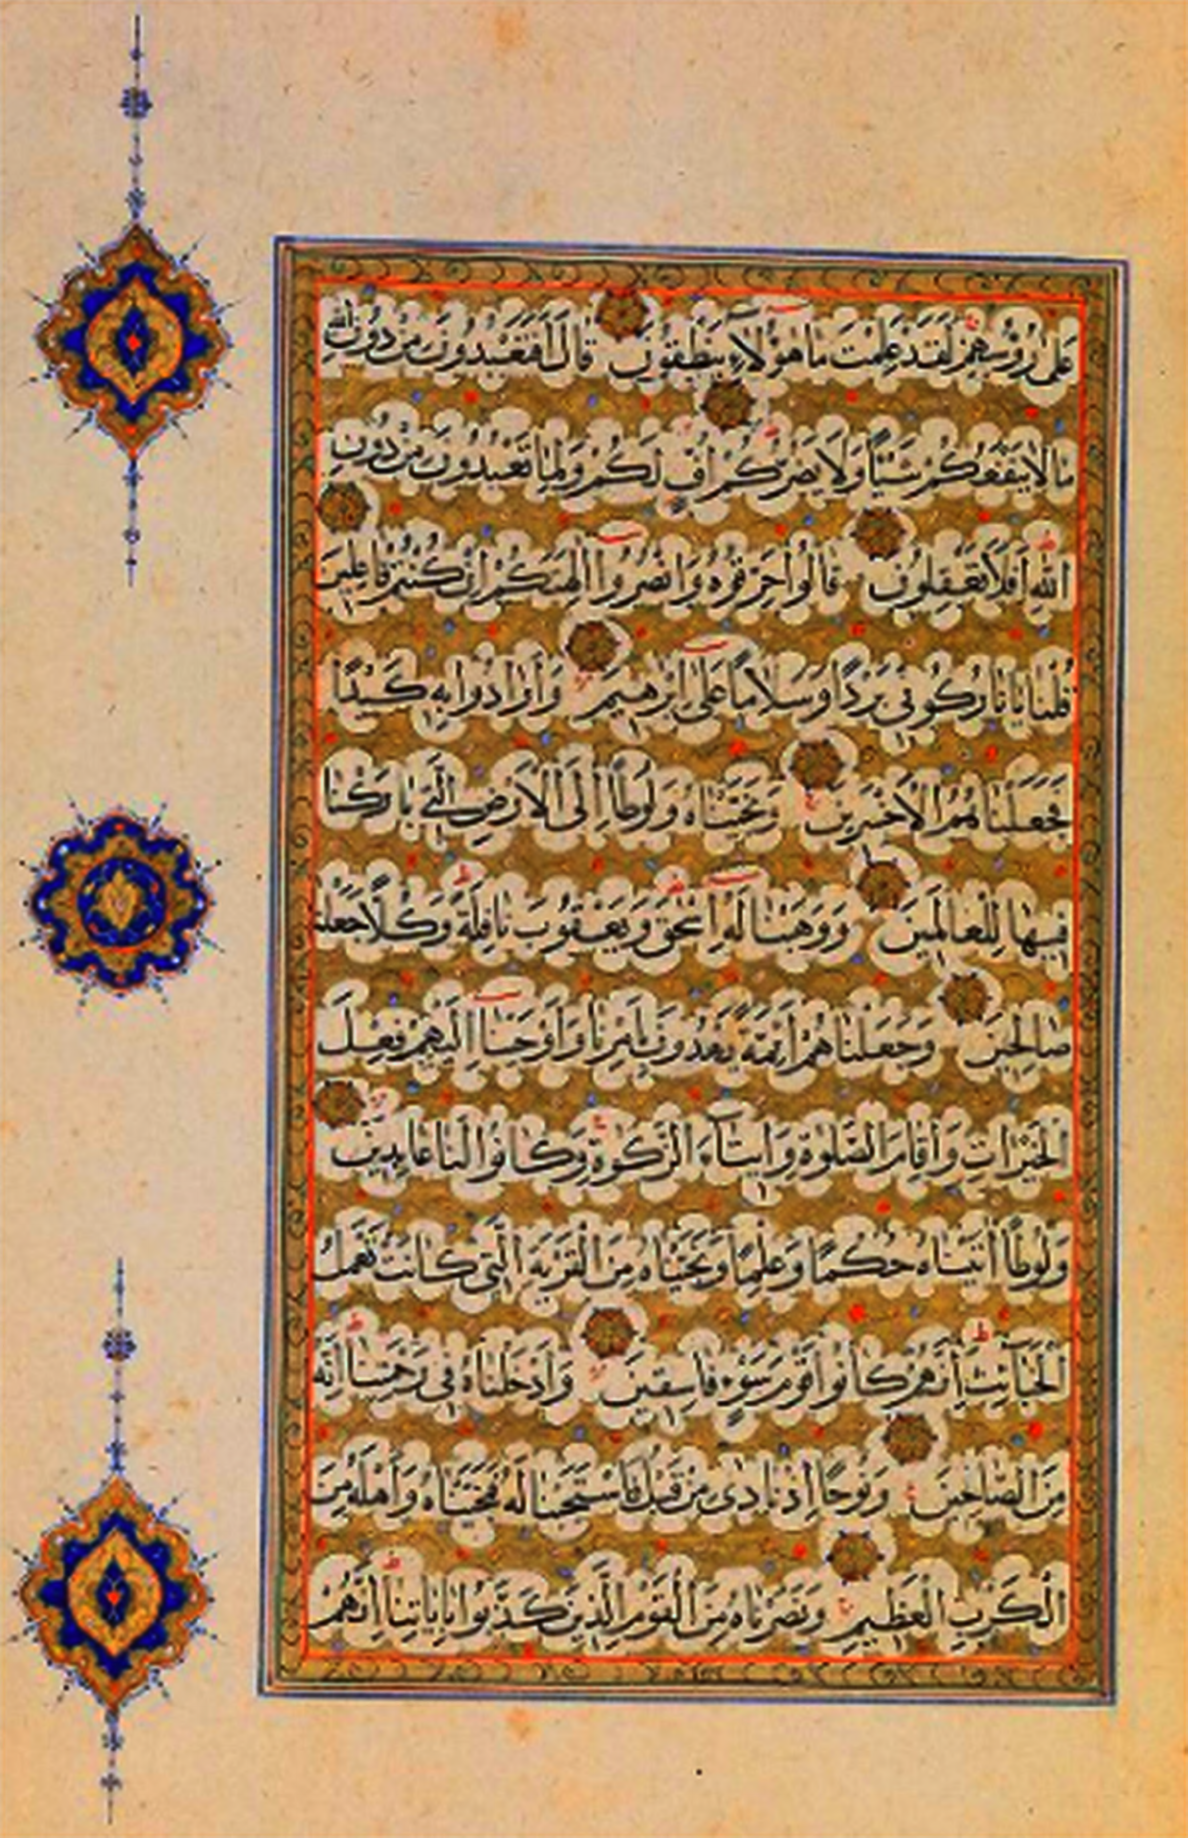 عَلٰى رُؤُسِهِمْ لَقَدْ عَلِمْتَ مَا هٰؤُلَاۤءِ يَنْطِقُونَ قَالَ اَفَتَعْبُدُونَ مِنْ دُونِ اللهِ
مَا لَا يَنْفَعُكُمْ شَيْئًا وَلَا يَضُرُّكُمْ اُفٍّ لَكُمْ وَلِمَا تَعْبُدُونَ مِنْ دُونِ
اللهِ اَفَلَا تَعْقِلُونَ قَالُوا حَرِّقُوهُ وَانْصُرُوۤا اٰلِهَتَكُمْ اِنْ كُنْتُمْ فَاعِلِينَ
قُلْنَا يَا نَارُ كُونِي بَرْدًا وَسَلَامًا عَلٰۤى اِبْرٰهِيمَ وَاَرَادُوا بِهِ كَيْدًا
فَجَعَلْنَاهُمُ الْاَخْسَرِينَ وَنَجَّيْنَاهُ وَلُوطًا اِلَى الْاَرْضِ الَّتِي بَارَكْنَا
فِيهَا لِلْعَالَمِينَ وَوَهَبْنَا لَهُۤ اِسْحٰقَ وَيَعْقُوبَ نَافِلَةً وَكُلًّا جَعَلْنَا
صَالِحِينَ وَجَعَلْنَاهُمْ اَئِمَّةً يَهْدُونَ بِاَمْرِنَا وَاَوْحَيْنَاۤ اِلَيْهِمْ فِعْلَ
الْخَيْرَاتِ وَاِقَامَ الصَّلٰوةِ وَاِيتَاۤءَ الزَّكٰوةِ وَكَانُوا لَنَا عَابِدِينَ
وَلُوطًا اٰتَيْنَاهُ حُكْمًا وَعِلْمًا وَنَجَّيْنَاهُ مِنَ الْقَرْيَةِ الَّتِي كَانَتْ تَعْمَلُ
الْخَبَاۤئِثَ اِنَّهُمْ كَانُوا قَوْمَ سَوْءٍ فَاسِقِينَ وَاَدْخَلْنَاهُ فِي رَحْمَتِنَا اِنَّهُ
مِنَ الصَّالِحِينَ وَنُوحًا اِذْ نَادٰى مِنْ قَبْلُ فَاسْتَجَبْنَا لَهُ فَنَجَّيْنَاهُ وَاَهْلَهُ مِنَ
الْكَرْبِ الْعَظِيمِ وَنَصَرْنَاهُ مِنَ الْقَوْمِ الَّذِينَ كَذَّبُوا بِاٰيَاتِنَا اِنَّهُمْ